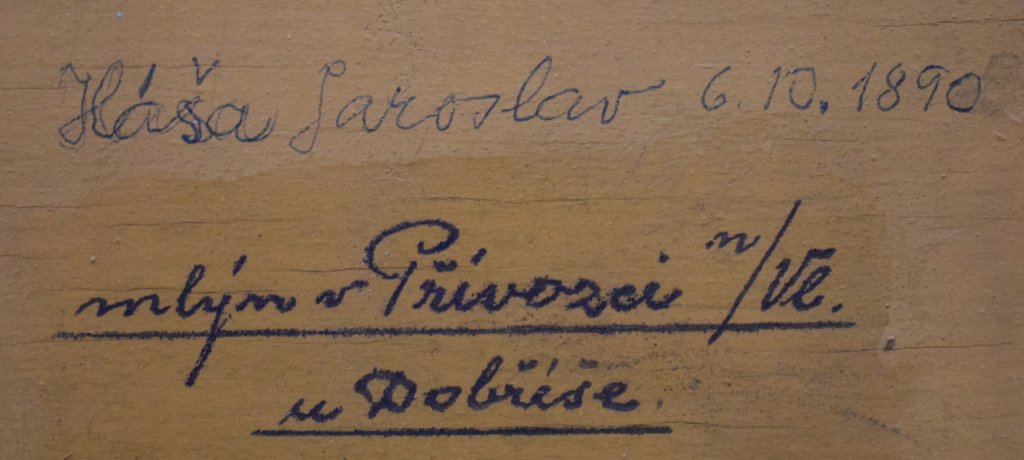 Háša Jaroslav 6. 10. 1890
mlýn v Přívozci n/Vl.
u Dobříše.